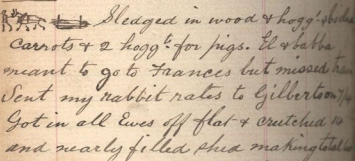 Sledged in wood & hogg
Carrots & 2 hoggts for pigs. El &
meant to go to Frances but missed train
Sent my rabbit rates to Gilbertson
Got in all Ewes off flat & crutched 14
and nearly filled shed making total